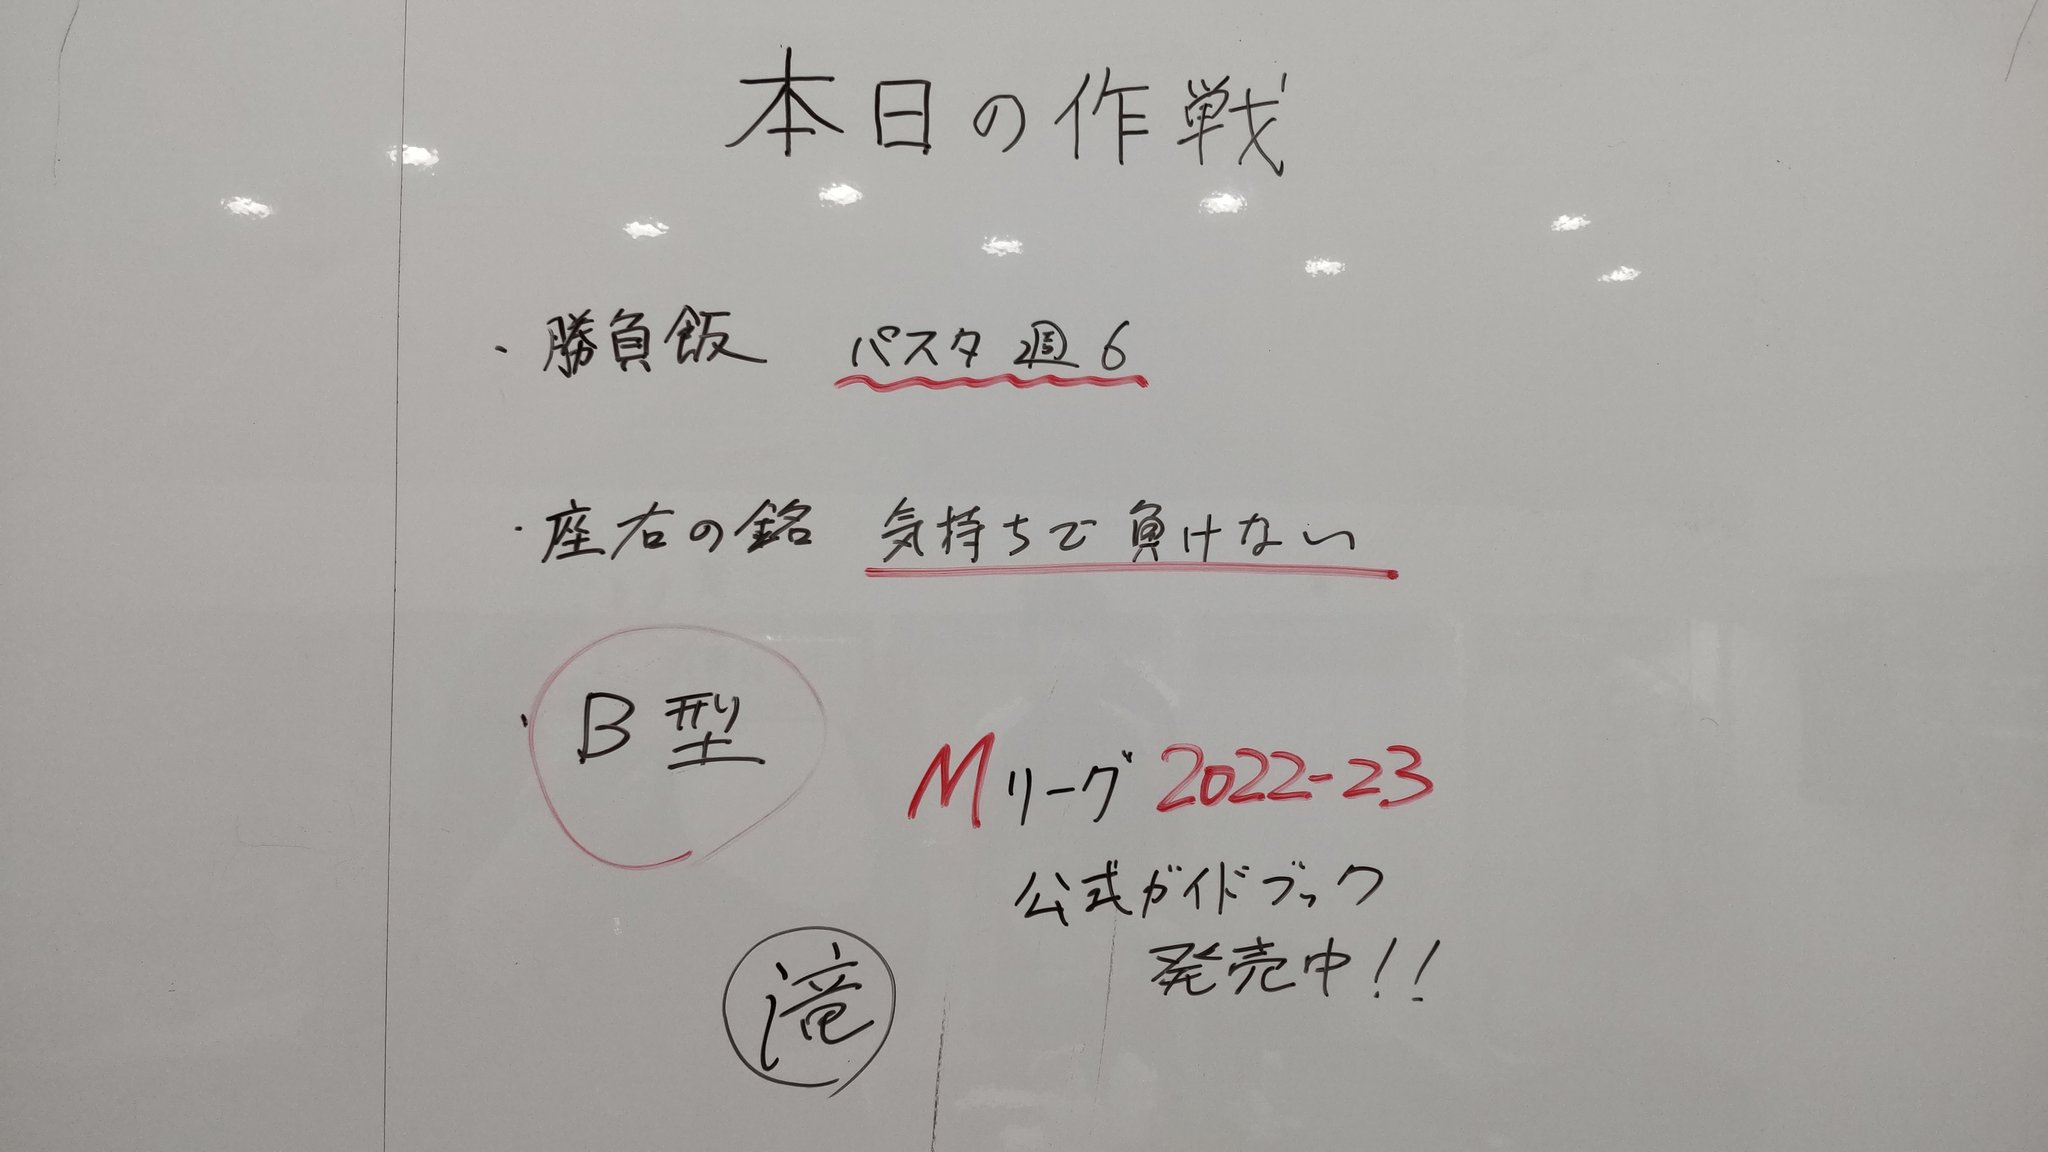 本日の作戦
・勝負飯 パスタ週6
・座右の銘 気持ちで負けない
・B型
Mリーグ 2022-23
公式ガイドブック
発売中!!
滝